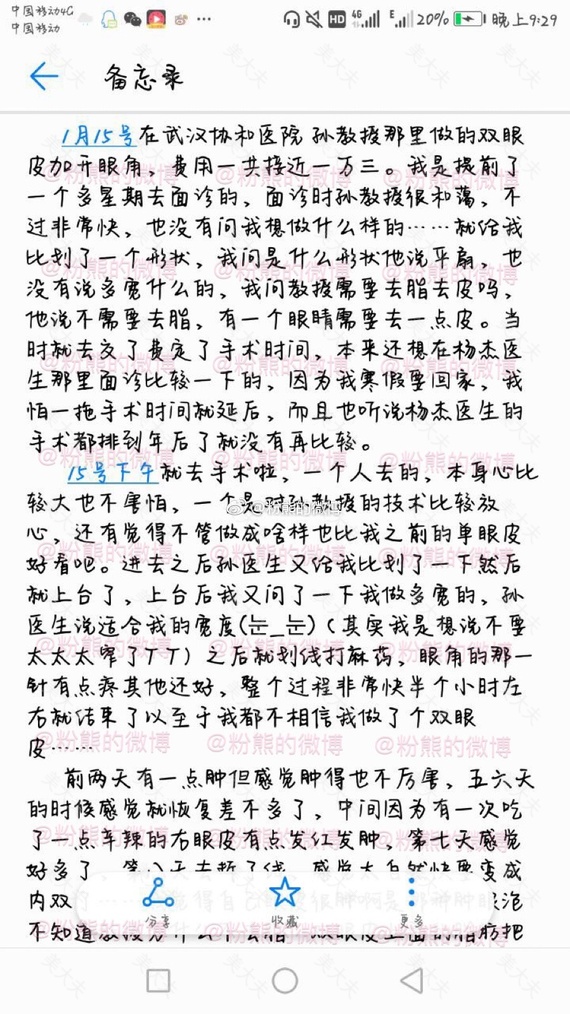 中国移动4G
中国移动
HD 4G E 20% 晚上9:29
备忘录
1月15号在武汉协和医院孙教授那里做的双眼
皮加开眼角，费用一共接近一万三。我是提前了
一个多星期去面诊的，面诊时孙教授很和蔼，不
过非常快，也没有问我想做什么样的……就给我
比划了一个形状，我问是什么形状他说平扇，也
没有说多宽什么的，我问教授需要去脂去皮吗，
他说不需要去脂，有一个眼睛需要去一点皮。当
时就去交了费定了手术时间，本来还想在杨杰医
生那里面诊比较一下的，因为我寒假要回家，我
怕一拖手术时间就延后，而且也听说杨杰医生的
手术都排到年后了就没有再比较。
15号下午就去手术啦，一个人去的，本身心比
较大也不害怕，一个是对孙教授的技术比较放
心，还有觉得不管做成啥样也比我之前的单眼皮
好看吧。进去之后孙医生又给我比划了一下然后
就上台了，上台后我又问了一下我做多宽的，孙
医生说适合我的宽度(눈_눈)（其实我是想说不要
太太太窄了TT）之后就划线打麻药，眼角的那一
针有点疼其他还好，整个过程非常快半个小时左
右就结束了以至于我都不相信我做了个双眼
皮……
前两天有一点肿但感觉肿得也不厉害，五六天
的时候感觉就恢复差不多了，中间因为有一次吃
了一点辛辣的右眼皮有点发红发肿，第七天感觉
好多了，第八天去拆了线，感觉太自然快要变成
内双了……
不知道教授为什么
分享
收藏
更多
@粉熊的微博